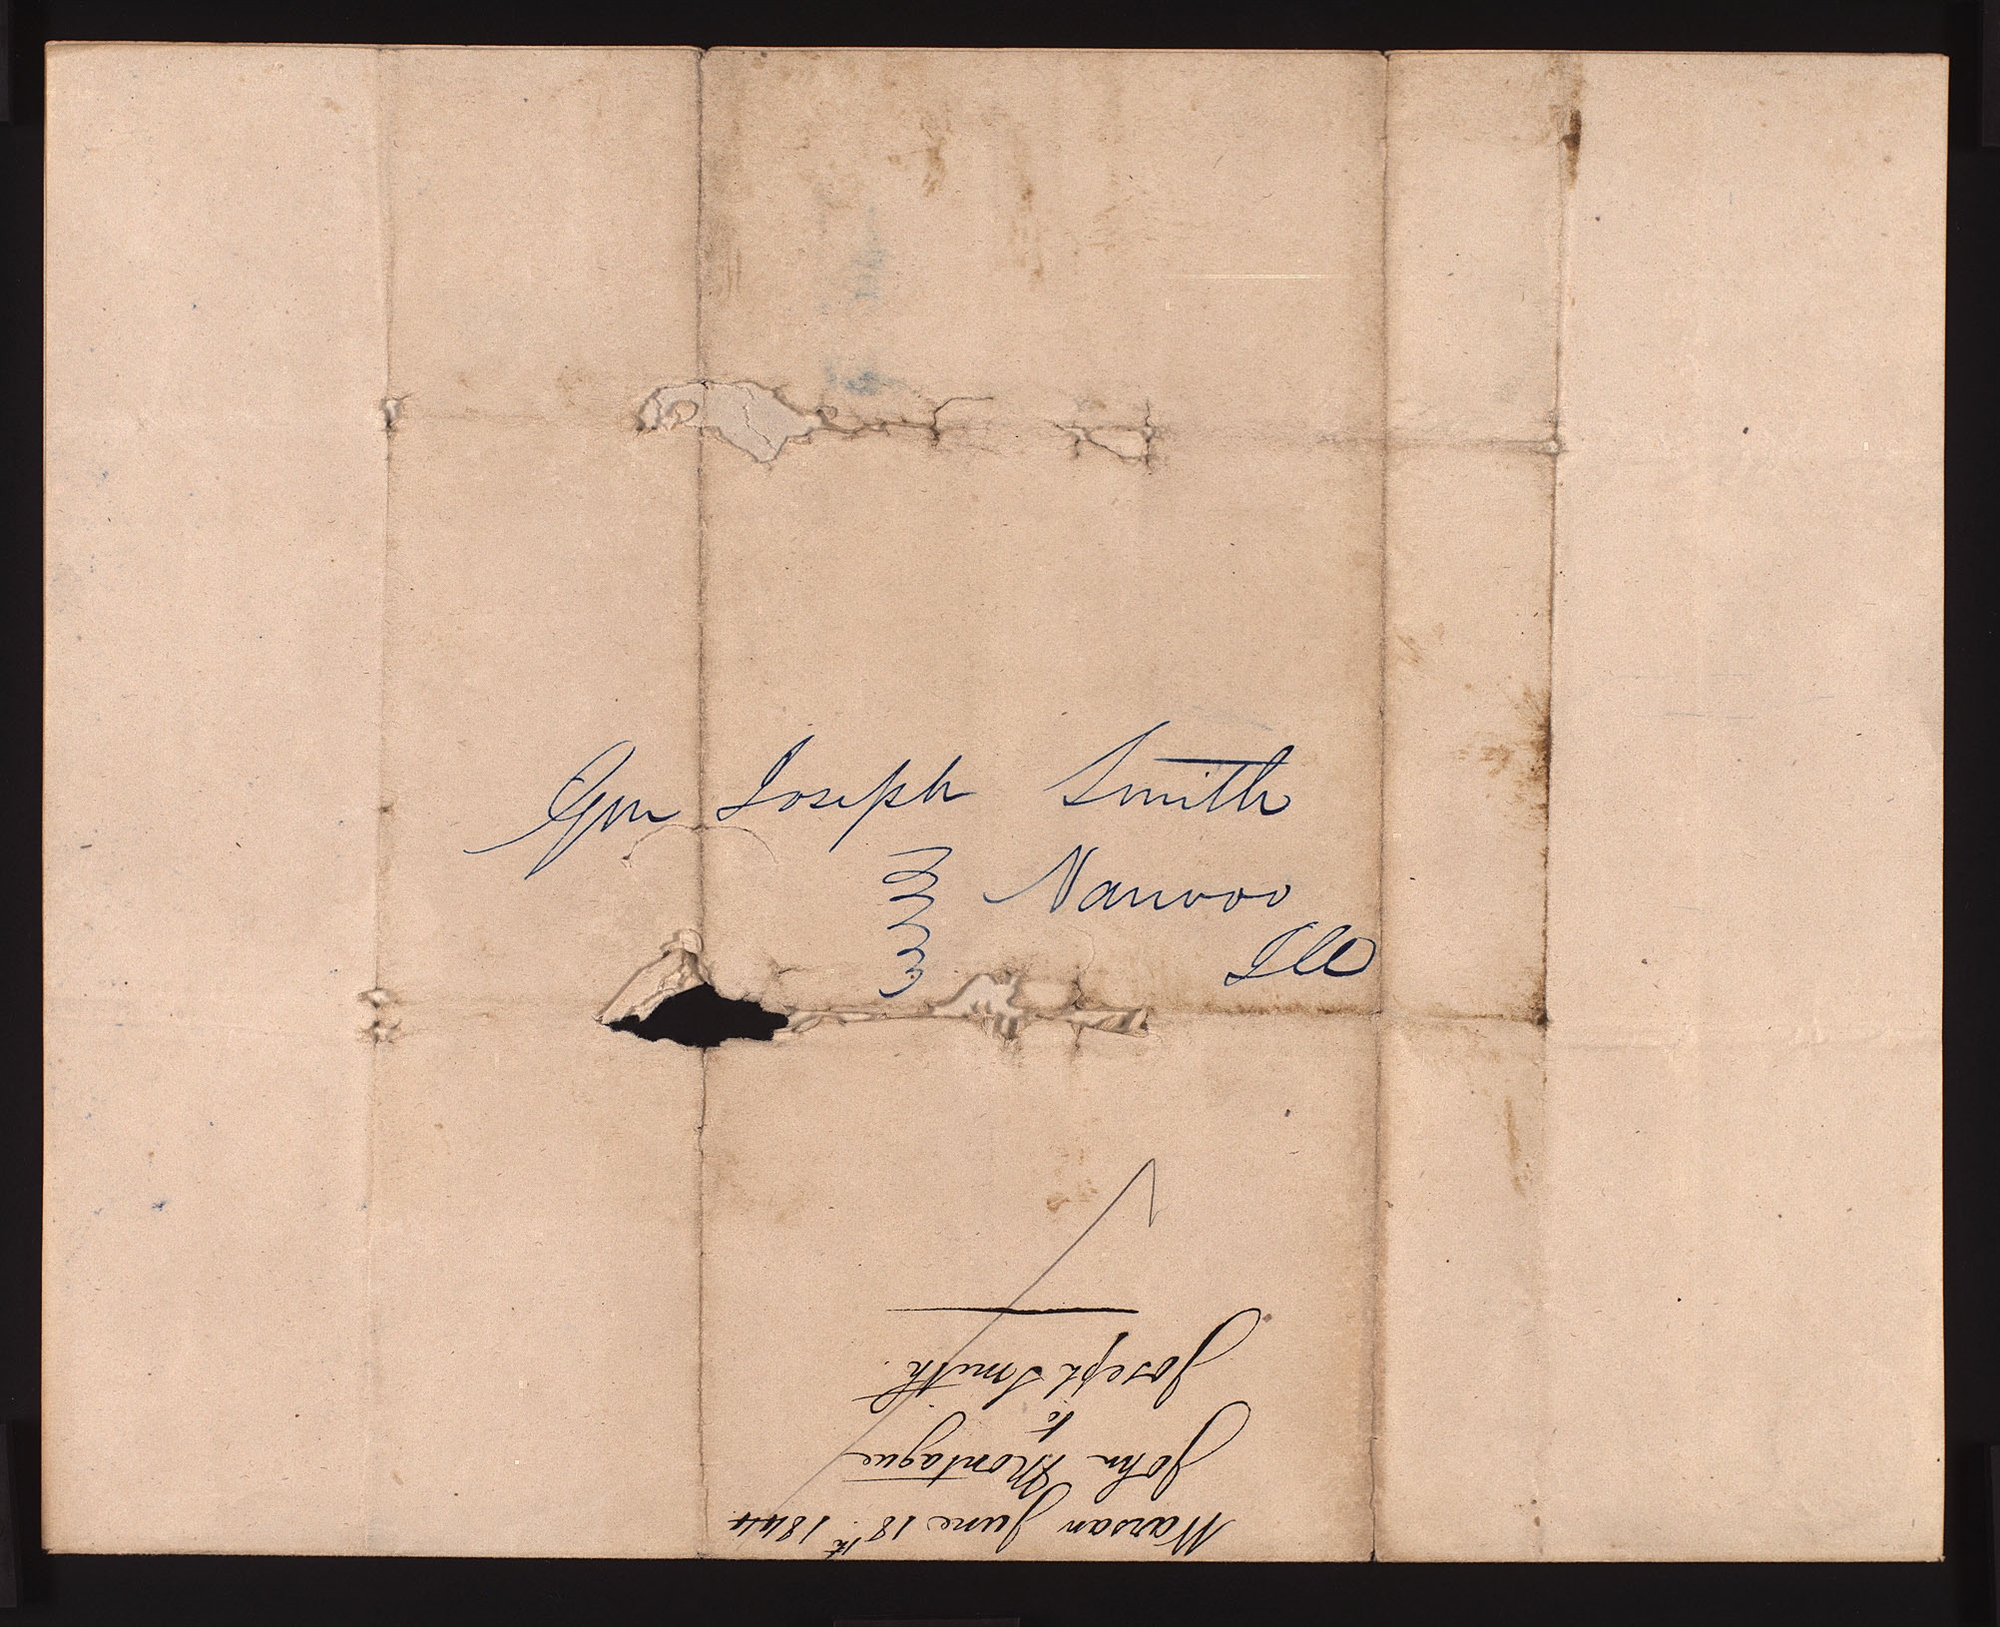 Gen Joseph Smith
Nauvoo
Ill
Warsaw June 18th. 1844
John Montague
to
Joseph Smith.